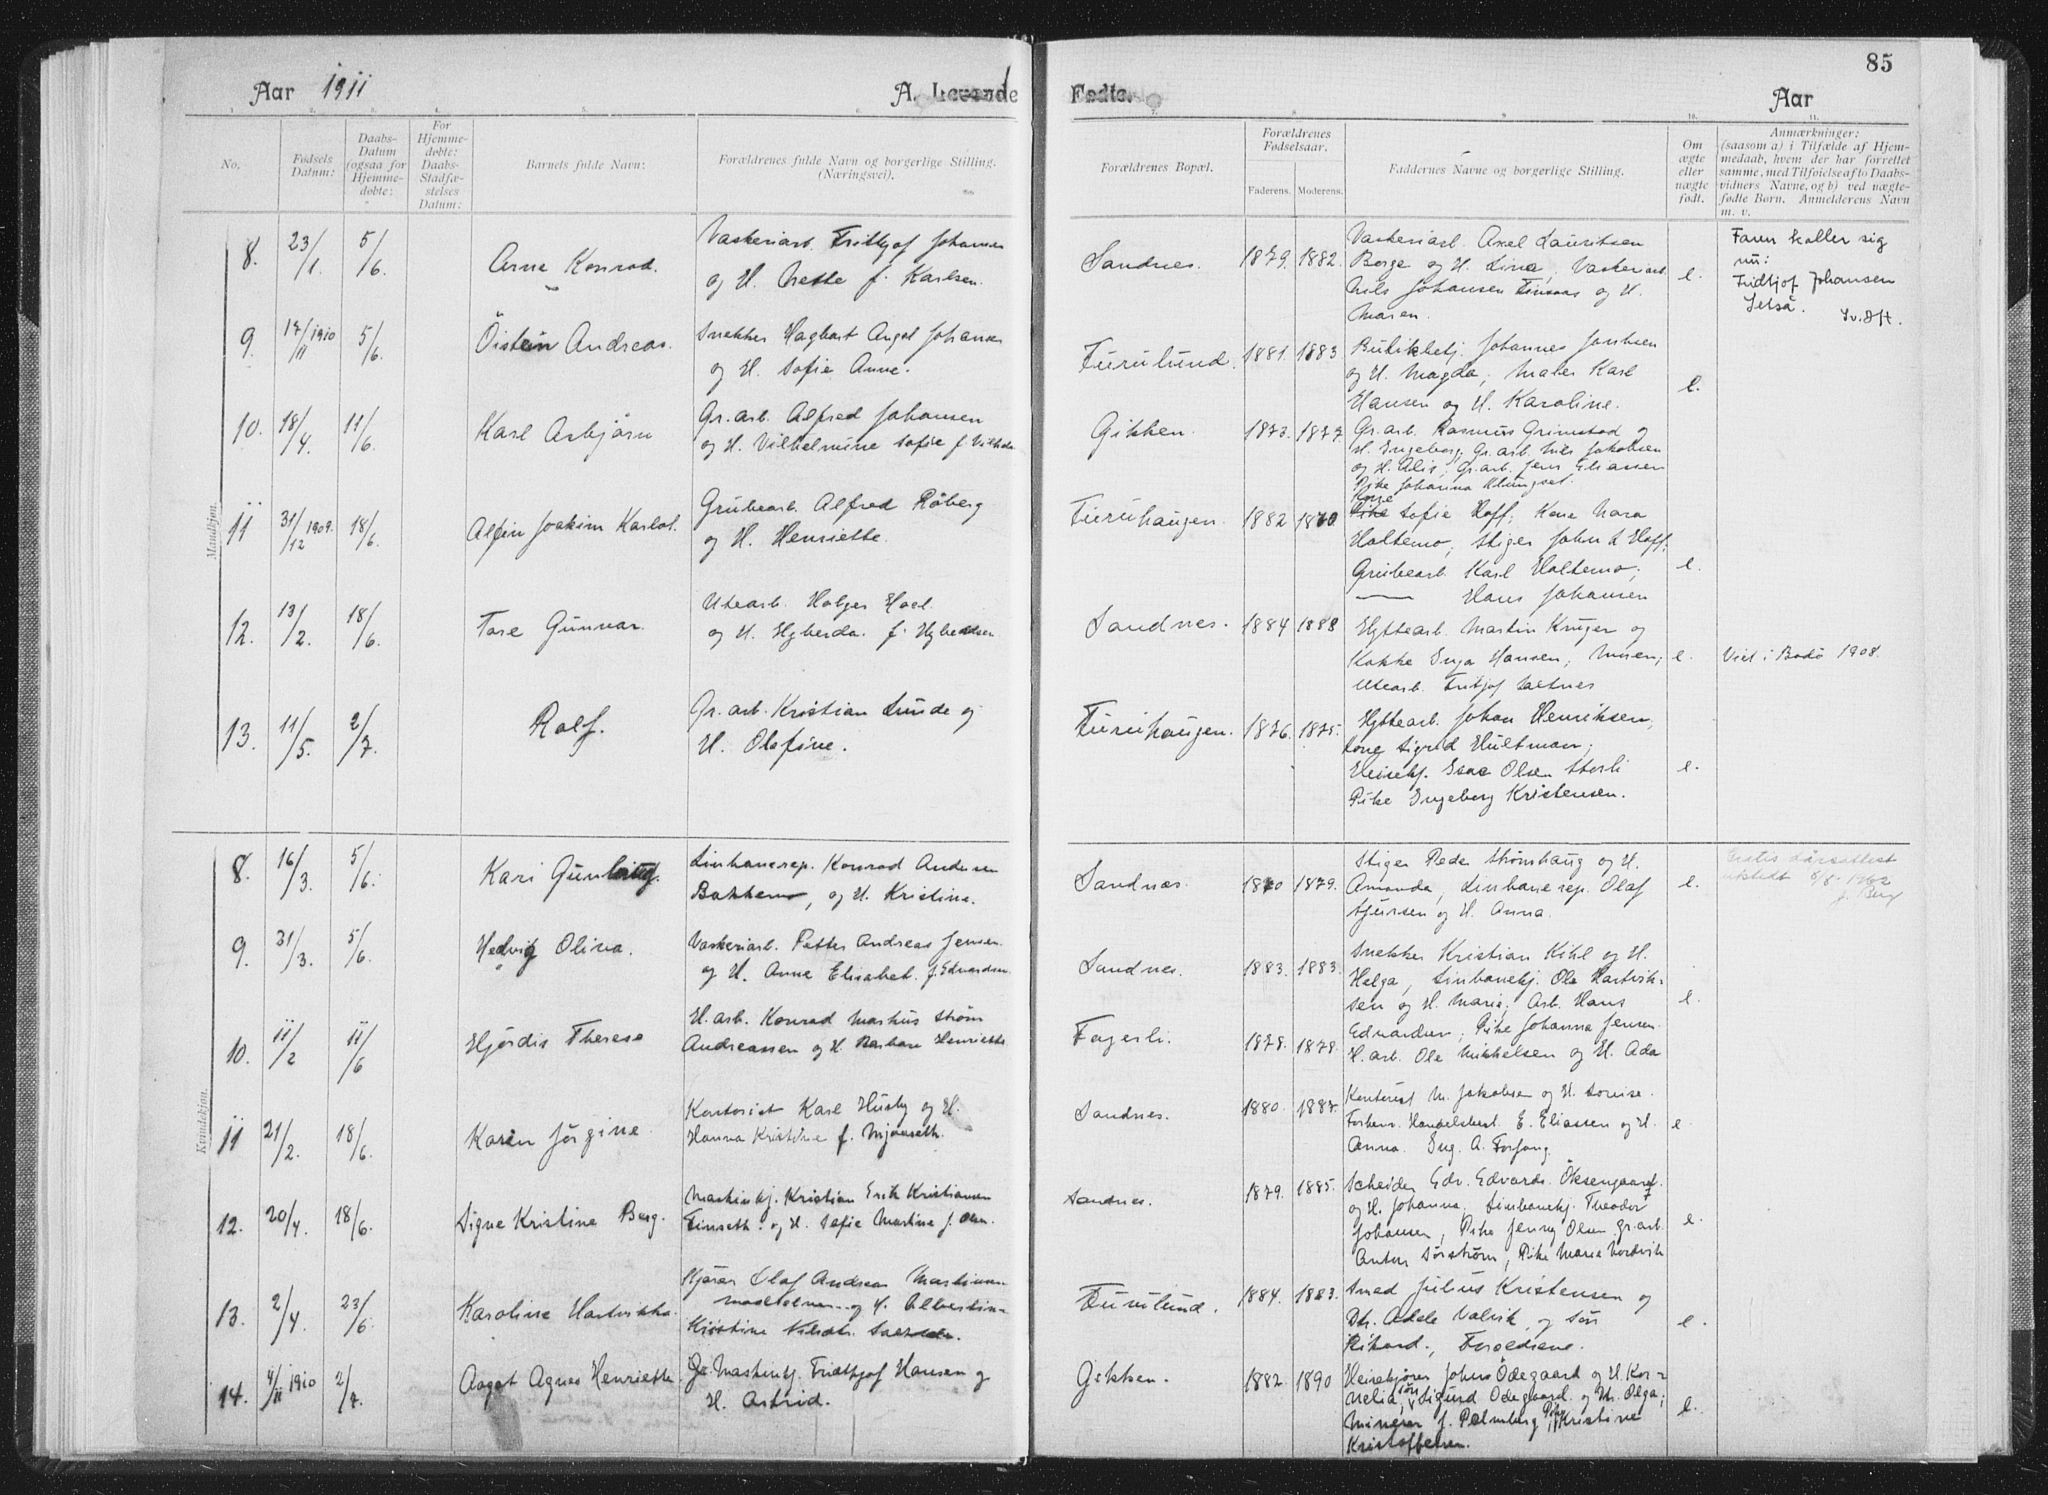 85
Aar 1911 A. Levende Fødte. Aar
1. 2. 3. 4. 5. 6. 7. 8. 9. 10. 11.
No.
Fødsels Datum:
Daabs-Datum (ogsaa for Hjemme-døbte:
For Hjemme-døbte: Daabs-Stadfæ-stelses Datum:
Barnets fulde Navn:
Forældrenes fulde Navn og borgerlige Stilling.
(Næringsvei).
Forældrenes Bopæl.
Forældrenes Fødselsaar.
Faderens. Moderens.
Faddernes Navne og borgerlige Stilling.
Om ægte eller uægte født.
Anmærkninger:
(saasom a) i Tilfælde af Hjem-
medaab, hvem der har forrettet
samme, med Tilføielse af to Daabs-
vidners Navne, og b) ved uægte-
fødte Børn. Anmelderens Navn
m. v.
Mandkjøn.
8. 23/1. 5/6. Arne Konrad.
Vaskeriarb. Fridtjof Johansen
og H. Nette f. Karlsen.
Sandnes. 1879. 1882.
Vaskeriarb. Axel Lauritsen
Borge og H. Lina, Vaskeriarb.
Nils Johansen Finsaas og H.
Maren.
e.
Faren kaller sig
nu:
Fridtjof Johansen
Setså.
9. 17/11 1910 5/6. Öistein Andreas.
Snekker Hagbart Angel Johansen
og H. Sofie Anne.
Furulund. 1881. 1883.
Butikbetj. Johannes Jakobsen
og H. Magda, Maler Karl
Hansen og H. Karoline.
e.
10. 18/4. 11/6. Karl Asbjørn
Gr. arb. Alfred Johansen
og H. Vilhelmine Sofie f. Vilhels.
Gikken. 1873. 1877.
Gr. arb. Rasmus Grimstad og
H. Ingeborg; Gr. arb. Nils Jakobsen
og H. Alis, Gr. arb. Jens Eliassen
Pike Johanna Klungset.
11 31/12 1909. 18/6. Alfin Joakim Karlot.
Grubearb. Alfred Röberg
og H. Henriette.
Furuhaugen. 1882 1880.
Kone
Sofie Hoff; Kone Nara
Holtemo; Stiger Johan A Hoff;
Grubearb. Karl Holtemo;
—— Hans Johansen
e.
12. 13/2. 18/6. Tore Gunnar.
Utearb. Holger Hoel
og H. Hyberda. f. Hybertsen
Sandnes. 1884 1888
Hyttearb. Martin Krüger og
Kokke Inga Hansen, Musen;
Utearb. Fritjof Saltnes
e.
Viet i Bodö 1908.
13. 11/5. 2/7. Rolf.
Gr. arb. Kristian Lunde og
H. Olefine.
Furuhaugen. 1876. 1875.
Hyttearb. Johan Henriksen,
Kone Sigrid Hultman;
Heisekj. Isac Olsen Storli
Pike Ingeborg Kristensen.
e.
Kvindekjøn.
8. 16/3. 5/6. Kari Gunborg.
Linbanerep. Konrad Andersen
Bakkemo, og H. Kristine.
Sandnes. 1880 1879.
Stiger Peder Strømhaug og H.
Amanda, Linbanerep. Olaf
Sjursen og H. Anna.
e.
Gratis dåpsattest
utstedt 8/8-1962
J. Berg
9. 31/3. 5/6. Hedvig Olina.
Vaskeriarb. Petter Andreas Jensen
og H. Anne Elisabet. f. Edvardsen.
Sandnes. 1883. 1883.
Snekker Kristian Kihl og H.
Helga, Linbanekj. Ole Hartvik-
sen og H. Marie; Arb. Hans
Edvardsen, Pike Johanna Jensen.
e.
10. 11/2 11/6 Hjørdis Therese
H. arb. Konrad Markus Strøm
Andreassen og H. Barbara Henriette
Fagerli. 1878. 1878.
H. arb. Ole Mikkelsen og H. Ada
11 21/2. 18/6. Karen Jørgine
Kontorist Karl Husby og H.
Hanna Kristine f. Mjönseth.
Sandnes. 1880. 1887.
Kontorist M. Jakobsen og H. Lovise.
Forhenv. Handelsbest. E. Eliassen og H.
Anna. Ing. A. Forfang.
e
12. 20/4. 18/6. Signe Kristine Berg.
Maskinkj. Kristian Erik Kristiansen
Finseth. og H. Sofie Martine f. Olsen.
Sandnes. 1879. 1885.
Scheider Edv. Edvards. Öksengaard
og H. Johanna, Linbanekj. Theodor
Johansen, Pike Jenny Olsen, gr. arb.
Anton Sørstrøm, Pike Maria Nordvik
e.
13. 2/4. 23/6. Karoline Hartvikka.
Kjører Olaf Andreas Martinsen
og H. Albertine
Kristine
Furulund. 1884. 1883.
Smed Julius Kristensen og
Dtr. Adele Valvik, og Søn
Rikard., Forældrene.
e.
14. 4/11 1910 2/7. Aagot Agnes Henriette.
Maskinkj. Fridthjof Hansen og
H. Astrid.
Gikken. 1882. 1890
Heisekjører Johns Ödegaard og H. Kor-
nelia, søn Sigurd Ödegaard og H. Olga;
Minerer J. Palmberg, Pike Kristine
Kristoffersen.
e.